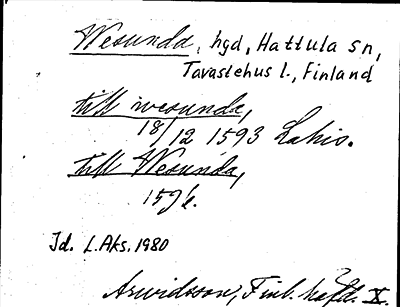 Wesunda, hgd, Hattula sn,
Tavastehus l., Finland
till wesunda,
18/12 1593 Lahis.
till Wesunda,
Jd. L.Aks. 1980
Arwidsson, Finl. häfd. X.